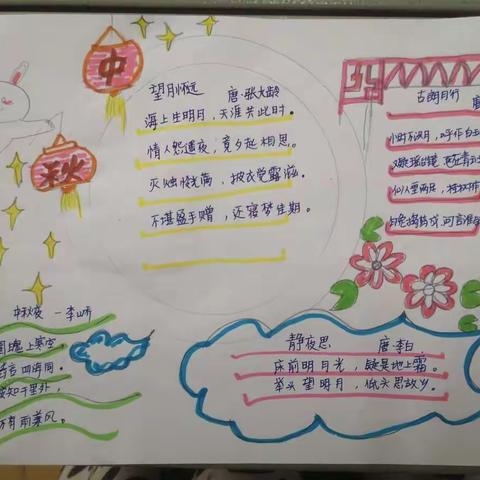 中
秋
望月怀远 唐·张九龄
海上生明月，天涯共此时。
情人怨遥夜，竟夕起相思。
灭烛 满，披衣觉露滋。
不堪盈手赠，还寝梦佳期。
古朗月行
小时不识月，呼作白玉
又疑瑶台镜，飞在青云
仙人垂两足，桂树
白兔捣药成，问言
中秋夜 —李峤
圆魄上寒空，
言四海同。
安知千里外，
不有雨兼风。
静夜思 唐·李白
床前明月光，疑是地上霜。
举头望明月，低头思故乡。